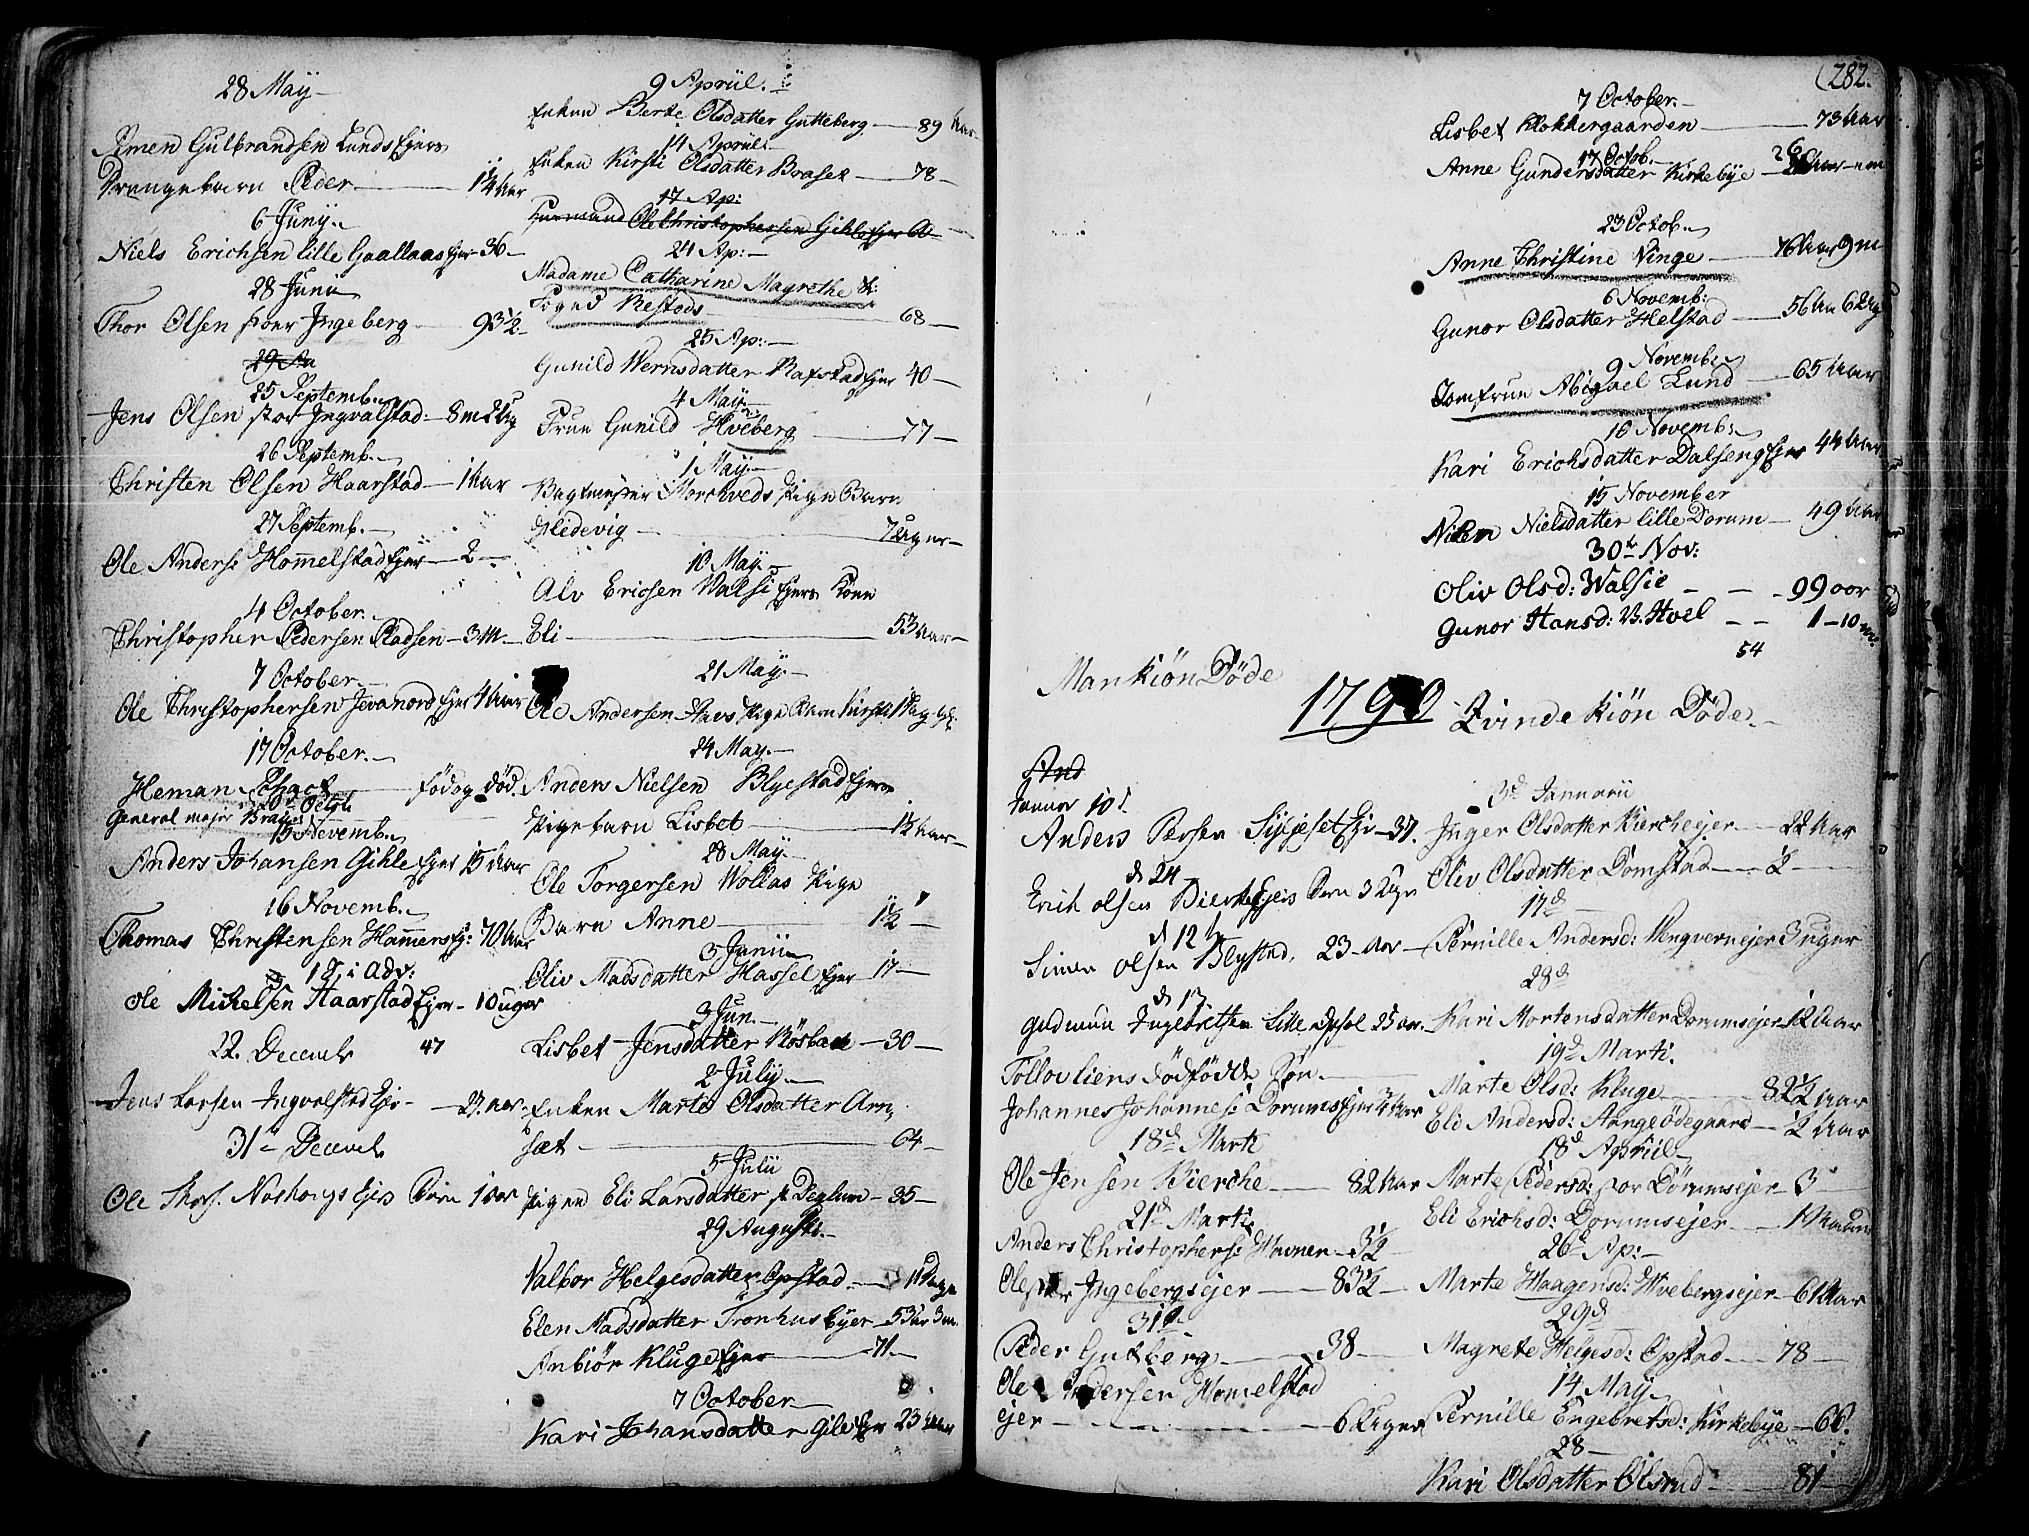 28 May
Simen Gulbrandsen Lunds Ejers
Drengebarn Peder 1¼ Aar
6 Juny
Niels Erichsen lille Gaallaas Ejer 36
28 Juni
Thor Olsen Ingeberg 93½
29
25 Septemb.
Jens Olsen stor Ingvalstad 8 m 2 Ug
26 Septemb.
Christen Olsen Haarstad 1 Aar
27 Septemb.
Ole Anders: Hommelstad Ejer 2
4 October
Christopher Pedersen Pladsen 3 M
7 October
Ole Christophersen Jevanord Ejer 4 Aar
17 October
Heman Schact fød og død
General major
15 Novemb.
Anders Johansen Gihle Ejer 15 Aar
16 Novemb.
Thomas Christensen Hammers Ej: 70 Aar
1 S. i Adv:
Ole Mickelsen Haarstad Ejer 10 uger
22. Decembr 47
Jens Larsen Ingvalstad Ejer 27 aar
31te Decembr
Ole Thors. Noshougs Ejes Barn 1 aar
9 Apriil
Enken Berte Olsdatter Gutteberg 89 Aar
14 Apriil
Enken Kirsti Olsdatter Braset 78
17 Ap:
Ole Christophersen Gihle Ejer
24 Ap:
Madame Catharine Magrethe
Foged Restods 68
25 Ap:
Gunild Wernsdatter Rafstad Ejer 40
4 May
Frue Gunild Hveberg 77
1 May
Vagtmester Morchveds Pige Barn
Hedevig 7 Uger
10 May
Alv Ericsen Valsi Ejers Kone
Eli 53 Aar
21 May
Ole Andersen Pige Barn
24 May
Anders Nielsen Blystad Ejers
Pigebarn Lisbet 1½ Aar
28 May
Ole Torgersen Wollas Pige
Barn Anne 1½
3 Junii
Oliv Madsdatter Hassel Ejer 17
3 Jun.
Lisbet Jensdatter Røsback 30
2 July
Enken Marte Olsdatter Arn
sæt 64
5 Julii
Pigen Eli Larsdatter Deglum 35
29 Augusti
Valbor Helgesdatter Opstad 11 Dage
Elen Madsdatter Tronhus Ejer 53 ar 3 m
Anbiør Kluge Ejer 71
7 October
Kari Johansdatter Gile Ejer 23 Aar
282.
7 October
Lisbet Klokkergaarden 73 Aar
17 Octob.
Anne Gundersdatter Kirkebye 26
23 Octob.
Anne Christine Vinge 76 Aar 9 m
6 Novemb:
Gunor Olsdatter Helstad 56 Aar 6 Ug
9 Novemb.
Jomfrue Abigael Lund 65 Aar
10 Novemb:
Kari Erichsdatter Dalseng Ejer 44 Aar
15 November
Nielsdatter lille Dorum 49 Aar
30te Nov:
Oliv Olsd: Walsie 99 aar
Gunor Hansd: V. Hoel 1 - 10 m:
54
Mankiøn Døde
1790
Qvinde Kiøn Døde
And
Januar 10d
Anders Persen Ejr 37.
d 24
Erich Olsen Bierke Ejers Barn 3 Uger
d 12
Simen Olsen Blystad, 23 aar
d 17
Gudmun Ingebretsen Lille Opsal 25 ar.
Tollov Liens dødfødde Søn
Johannes Johannes: Dorums Ejer ¾ Aar
18d Marti
Ole Jensen Bierche 82 Aar
21d Marti
Anders Christophers: Hovner 3½
Ole Ingebergsejer 83½
31d
Peder Gutberg 38
Ole Andersen Homelstad
ejer 6 Uger
3d Januarii
Inger Olsdatter Bierchejer 22 Aar
Oliv Olsdatter Domstad ½
17d
Pernille Andersd: Vengvernejer 3 uger
28d
Kari Mortensdatter Dorumsejer 12 Aar
19d Marti.
Marte Olsd: Kluge 82½ Aar
Eli Andersd: Aangeødegaard ½ Aar
18d Apriil
Marte Pedersd: Dørumsejer 3
Eli Erichsd: Dorumsejer 1 Maan
26d Ap:
Marte Haagensd: Hvebergsejer 61 Aar
29d
Magrete Helgesd: Opstad 78
14 May
Pernille Engebretsd: Kirkebye 66.
28
Kari Olsdatter Olsrud 81